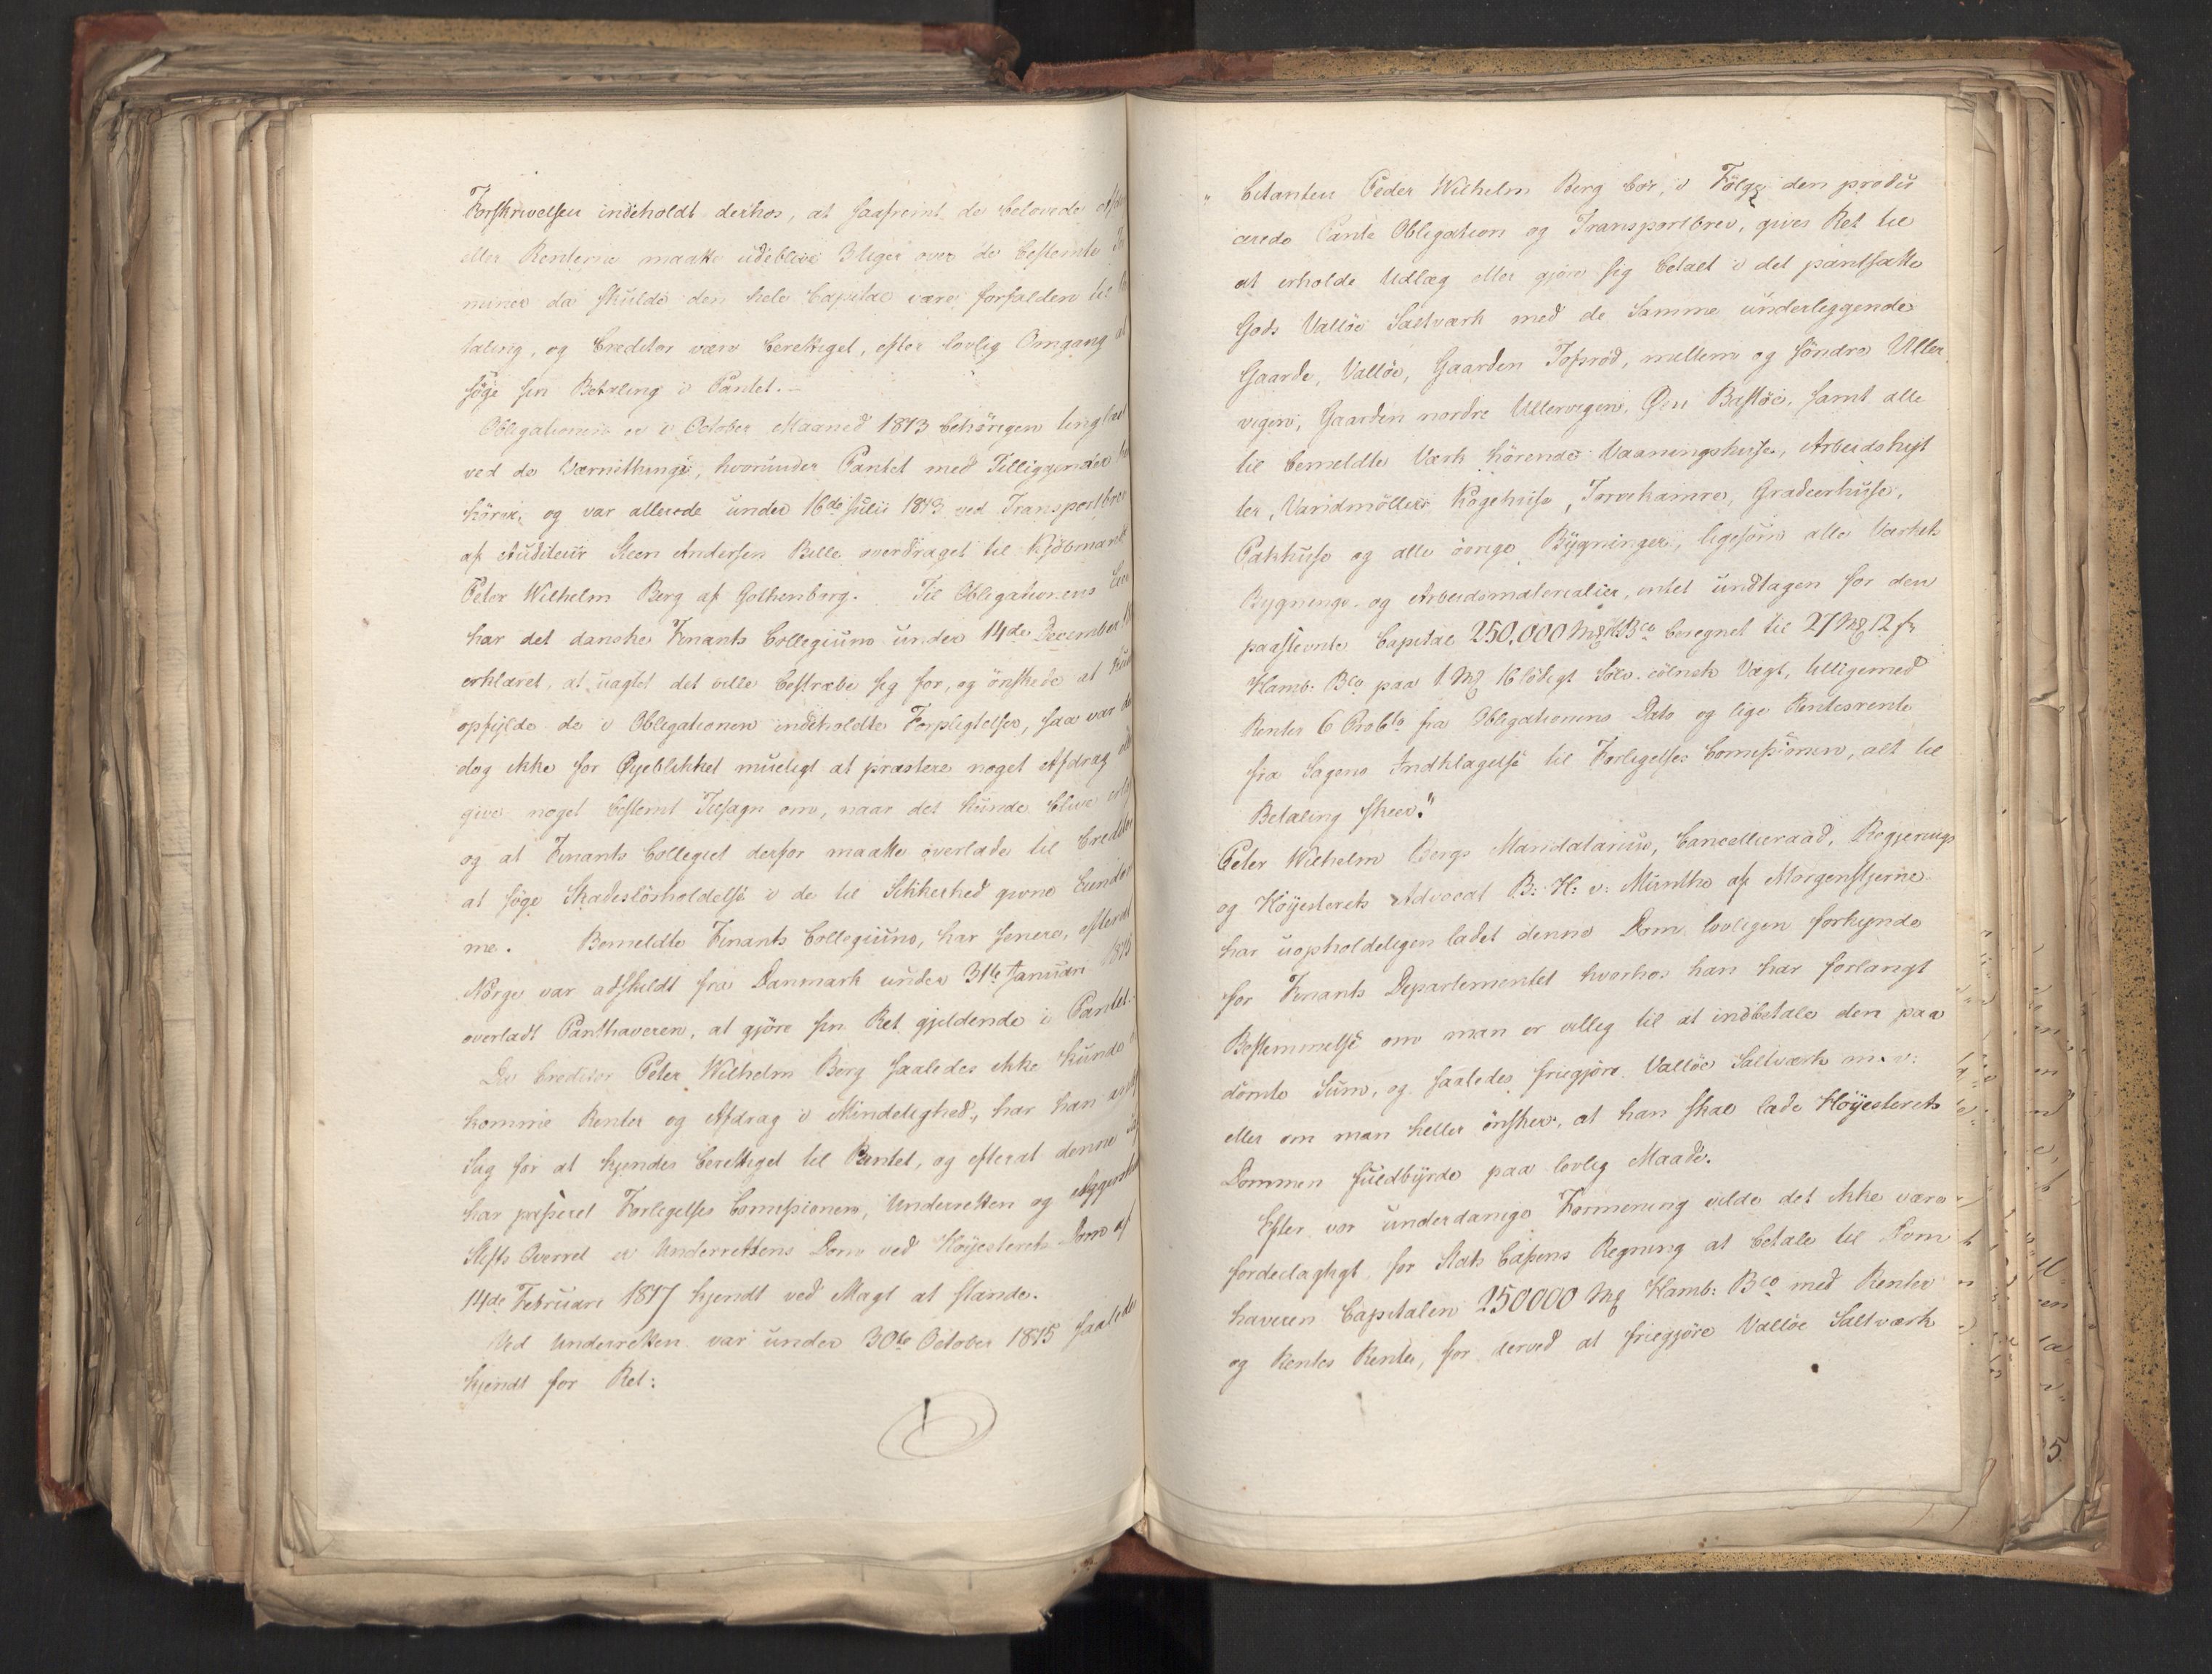 Forskrivelsen indeholdt derhos, at saafremt de belovede
eller Renterne maatte udeblive 3 Uger over de bestemte
miner da skulde den hele Capital være forfalden til
taling, og Creditor være berettiget, efter lovlig Omgang at
søge sin Betaling i Pantet.–
Obligationen er i October Maaned 1813 behörigen tinglæst
ved de Værnethinge, hvorunder Pantet med Tilliggender
hörer, og var allerede under 16de Julii 1813 ved Transportbrev
af Auditeur Steen Andersen Bille overdraget til Kjöbmand
Peter Wilhelm Berg af Gothenborg. Til Obligationens
har det danske Finants Collegium under 14de December
erklæret, at uagtet det ville bestræbe sig for, og önskede at
opfylde de i Obligationen indeholdte Forpligtelser, saa var
dog ikke for Øyeblikket mueligt at præstere noget Afdrag
give noget bestemt Tilsagn om, naar det kunde blive
og at Finants Collegiet derfor maatte overlade til Creditor
at söge Skadeslösholdelse i de til Sikkerhed givne Eiendom
me. Bemeldte Finants Collegium, har senere, efterat
Norge var adskildt fra Danmark under 31te Januari 1815
overladt Panthaveren, at gjöre sin Ret gjeldende i Pantet.
Da Creditor Peter Wilhelm Berg saaledes ikke kunde
komme Renter og Afdrag i Mindelighed, har han
Sag for at kjendes berettiget til Pantet, og efterat denne
har passeret Forligelses Commissionen, Underretten og Aggershuus
Stifts Overret er Underrettens Dom ved Höyesterets Dom af
14de Februari 1817 kjendt ved Magt at stande.
Ved Underretten var under 30te October 1815 saaledes
kjendt for Ret:
" Citanten Peder Wilhelm Berg bör, i Fölge den produ
cerede Pante Obligation og Transportbrev, gives Ret til
at erholde Udlæg eller gjöre sig betalt i det pantsatte
Gods Vallöe Saltværk med de Samme underliggende
Gaarde, Vallöe, Gaarden Tofsröd, mellem og söndre Uller
vigen, Gaarden nordre Ullervigen, Øen Bastöe, samt alle
til bemeldte Værk hörende Vaaningshuse, Arbeidshyt
ter, Vandmöller Kogehuse, Torvekamre, Gradeerhuse,
Pakhuse og alle övrige Bygninger, ligesom alle Værkets
Bygnings- og Arbeidsmaterialier, intet undtagen for den
paastevnte Capital 250.000 Mk H: Bco beregnet til 27 Mk 12 s
Hamb: Bco paa 1 Mk 16 lödigt Sölv cölnsk Vægt, tilligemed
Renter 6 ProCto fra Obligationens Dato og lige Rentesrente
fra Sagens Indklagelse til Forligelses Commissionen, alt til
Betaling skeer."
Peter Wilhelm Bergs Mandatarius, Cancellieraad, Regjerings
og Höyesterets Advocat B: H: v: Munthe af Morgenstjerne
har uopholdeligen ladet denne Dom lovligen forkynde
for Finants Departementet hvorhos han har forlangt
Bestemmelse om man er villig til at indbetale den paa
dömte Sum, og saaledes friegjöre Vallöe Saltværk m. v:
eller om man heller önsker, at han skal lade Höyesterets
Dommen fuldbyrde paa lovlig Maade.
Efter vor underdanige Formening vilde det ikke være
fordeelagtigt for Stats Cassens Regning at betale til Dom
haveren Capitalen 250000 Mk Hamb: Bco med Renter
og Rentes Renter, for derved at friegjöre Vallöe Saltværk